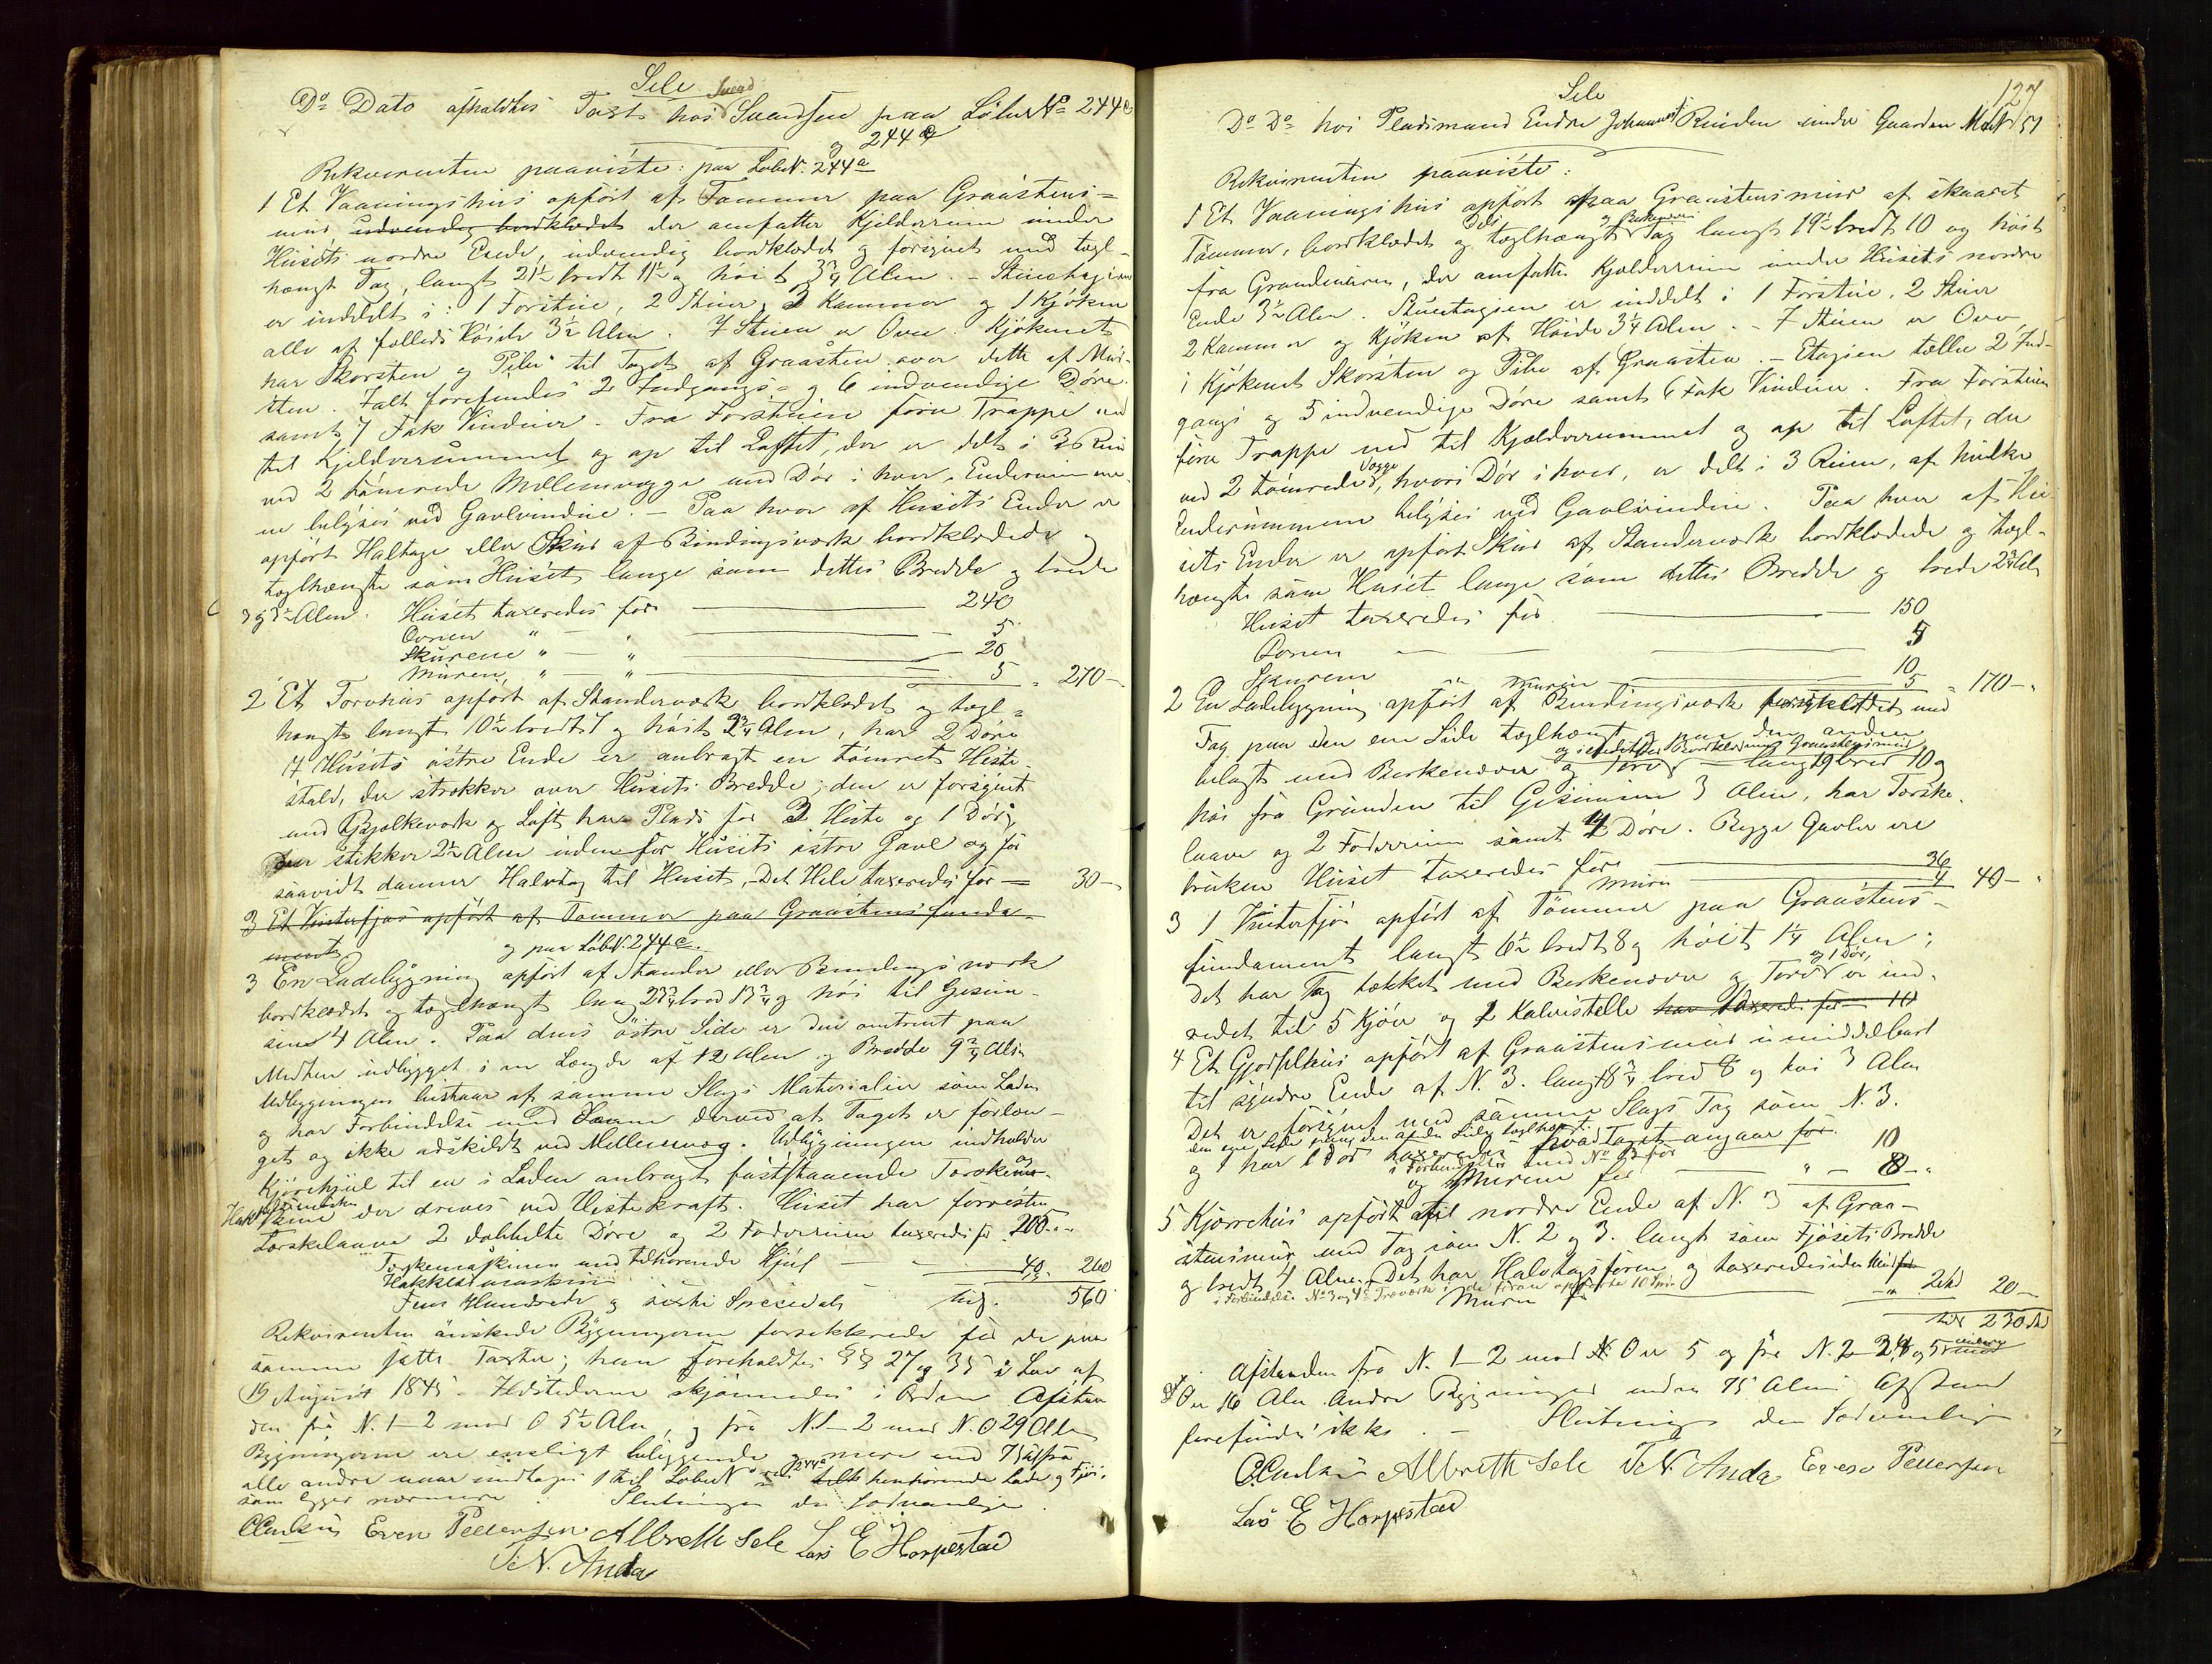 Sele
Do Dato afholdtes Taxt hos Svend Svendsen paa Löbe No 244a
og 244c
Rekvirenten paaviste: paa LöbeN. 244a
1 Et Vaaningshus opfört af Tömmer paa Graastens-
mur udvendig bordklædt der omfatter Kjelderrum under
Husets nordre Ende, udvendig bordklædet og forsynet med tegl-
hængt Tag, langt 21½ bredt 11½ og höit 3¾ Alen. - Stueetagien
er inddelt i: 1 Forstue, 2 Stuer, 3 Kammer og 1 Kjöken
alle af fælleds Höide 3½ Alen. I Stuen er Oven. Kjökenet
har Skorsten og Pibe til Taget af Graasten over dette af Mur-
sten. Ialt forefindes 2 Indgangs- og 6 indvendige Döre
samt 7 Fak Vinduer. Fra Forstuen förer Trappe ned
til Kjelderrummet og op til Loftet, der er delt i 3 Rum
ved 2 tömrede Mellemvægge med Dör i hver, Enderummene
belyses ved Gavlvindue. - Paa hver af Husets Ender er
opfört Halvtage eller Skur af Bindingsværk bordklædede og
teglhængte som Huset, lange som dettes Bredde og brede
3 og 3½ Alen. Huset taxeredes for 240
Ovnen " - " 5
Skurene " - " 20
Muren " - " 5 - 270 -
2 Et Torvhus opfört af Standerværk bordklædet og tegl-
hængt langt 10½ bredt 7 og höit 2¾ Alen, har 2 Döre
I Husets östre Ende er anbragt en tömret Heste-
stald, der strækker over Husets Bredde; den er forsynet
med Bjælkeværk og Loft har Plads for 3 Heste og 1 Dör,
Den stikker 2½ Alen uden for Husets östre Gavl og for
saavidt danner Halvtag til Huset, Det Hele taxeredes for - 30 -
3 Et Vinterfjös opfört af Tömmer paa Graastens funda-
ment
og paa LöbN. 244c.
3 En Ladebygning opfört af Stander eller Bindingsværk
bordklædet og teglhængt lang 23¾ bred 13¾ og höi til Gesim-
sen 4 Alen. Paa dens östre Side er den omtrent paa
Midten udbygget i en Længde af 12 Alen og Bredde 9¾ Alen
Udbygningen bestaar af samme Slags Materialier som Laden
og har Forbindelse med samme derved at Taget er forlæn-
get og ikke adskildt ved Mellemvæg. Udbygningen indholder
Kjörehjul til en i Laden anbragt faststaaende Torskema- og
Hakkelsmaskine der drives ved Hestekraft. Huset har forresten
Torskelaave 2 dobbelte Döre og 2 Foderrum taxeredes for 200 - -
Torskemaskinen med tilhörende Hjul 40 260
Hakkelsmaskin
Fem Hundrede og sexti Speciedaler tils. 560
Rekvirenten önskede Bygningerne forsikkrede for de paa
samme satte Taxter; han foreholdtes §§ 27 og 35 i Lov af
19 August 1845. Ildstederne skjönnedes i Orden Afstan
den fra N. 1 - 2 mod O 5½ Alen, og fra N. 1 - 2 mod N.O 29 Alen
Bygningerne ere ensligt beliggende og mere end 75 Al fra
alle andre naar undtages 1 til LöbeN 244 henhörende Lade og Fjös,
som ligger nærmere. Slutningen den sædvanlige
CCarlsen Even Pedersen Albreth Sele Lars E Horpestad
T. N. Anda
127
Sele
Do Do hos Pladsmand Endre Johannes Reiden under Gaarden MatN 51
Rekvirenten paaviste:
1 Et Vaaningshus opfört paa Graastensmur af skaaret
Tömmer, bordklædet og dels teglhængt og Birkenever Tag langt 19½ bredt 10 og höit
fra Grundmuren, der omfatter Kjelderrum under Husets nordre
Ende 3½ Alen. Stueetagien er inddelt i 1 Forstue, 2 Stuer
2 Kammer og Kjöken af Höide 3¼ Alen. - I Stuen er Oven
i Kjökenet Skorsten og Pibe af Graasten. - Etagien tæller 2 Ind-
gangs og 5 indvendige Döre samt 6 Fak Vinduer. Fra Forstuen
förer Trappe ned til Kjælderrummet og op til Loftet, der
ved 2 tömrede Vægge, hvori Dör i hver, er delt i 3 Rum, af hvilke
Enderummene belyses ved Gavlvindue. Paa hver af Hu-
sets Ender er opfört Skur af Standerværk bordklædede og tegl-
hængte som Huset lange som dettes Bredde og brede 2¾ Al
Huset taxeredes for 150
Ovnen 5
Skurene 10
" Muren 5 " 170 - "
2 En Ladebygning opfört af Bindingsværk bordklædet med
Tag paa den ene Side teglhængt og paa den anden
belagt med Birkenæver og Torv langt 19 bred 10 og
höi fra Grunden til Gesimsen 3 Alen, har Torske-
laave og 2 Foderrum samt 4 Döre. Begge Gavler ere
brukne Huset taxeredes for 36
Muren 4 40 - "
3 1 Vinterfjös opfört af Tömmer paa Graastens-
fundament langt 6½ bredt 8 og höit 1¼ Alen;
Det har Tag tækket med Birkenæver og Torv og 1 Dör, er ind-
redet til 5 Kjöer og 2 Kalvestelle har taxeredes for 10
4 Et Gjödselhus opfört af Graastensmur umiddelbart
til söndre Ende af N. 3. langt 8¾ bred 8 og höi 3 Alen
Det er forsynet med samme Slags Tag som N. 3.
den ene Side paa den anden Side teglhængt
og har 1 Dör taxeredes hvad Taget angaar for
i Forbindelse med No 3 for 10
og Murene for " - 8 - "
5 Kjörrehus opfört til nordre Ende af N. 3 af Graa-
stensmur med Tag som N. 2 og 3. langt som Fjösets Bredde
og bredt 4 Alen. Det har Halvtagsform og taxeredes uden Mur for
i Forbindelse No 3 og 4
Muren 2 20 -
tils 230
Afstanden fra N. 1 - 2 mod O er 5 og fra N. 2 - 3, 4 og 5
O er 16 Alen. Andre Bygninger inden 75 Alens Afstand
forefindes ikke. - Slutningen den Sædvanlige
CCarlsen Albreth Sele T. N. Anda Even Pedersen
Lars E Horpestad